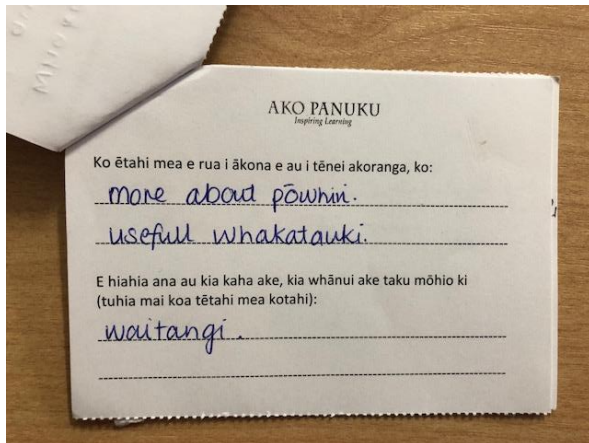 AKO PANUKU
Inspiring Learning
Ko ētahi mea e rua i ākona e au i tēnei akoranga, ko:
more about pōwhiri.
usefull whakatauki.
E hiahia ana au kia kaha ake, kia whānui ake taku mōhio ki
(tuhia mai koa tētahi mea kotahi):
waitangi.